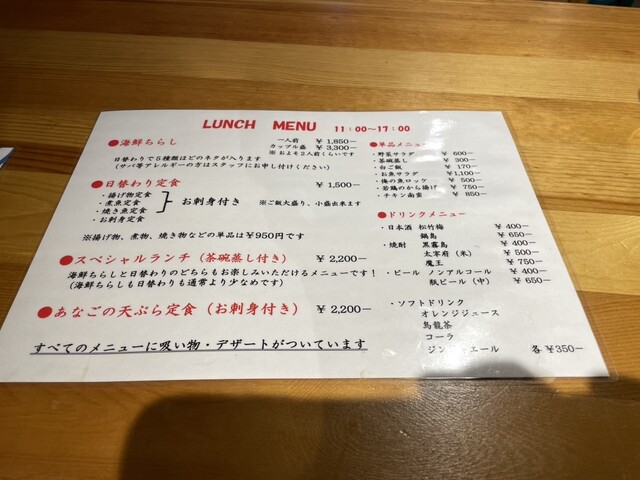 LUNCH MENU 11:00～17:00
●海鮮ちらし 一人前 ￥1,850ー
カップル盛 ￥3,300ー
※ おおよそ2人前くらいです
日替わりで５種類ほどのネタが入ります
(サバ等アレルギーの方はスタッフにお申し付けください)
●日替わり定食 ￥1,500ー
・揚げ物定食
・煮魚定食
・焼き魚定食
・お刺身定食
お刺身付き ※ご飯大盛り、小盛出来ます
※揚げ物、煮物、焼き物などの単品は￥950円です
●スペシャルランチ（茶碗蒸し付き） ￥2,200ー
海鮮ちらしと日替わりのどちらもお楽しみいただけるメニューです！
(海鮮ちらしも日替わりも通常より少なめです)
●あなごの天ぷら定食（お刺身付き） ￥2,200ー
すべてのメニューに吸い物・デザートがついています
●単品メニュー
・野菜サラダ ￥600ー
・茶碗蒸し ￥300ー
・白ご飯 ￥170ー
・お魚サラダ ￥1,100ー
・梅の魚ロッケ ￥500ー
・若鶏のから揚げ ￥750ー
・チキン南蛮 ￥850ー
●ドリンクメニュー
・日本酒 松竹梅 ￥400ー
鍋島 ￥650ー
・焼酎 黒霧島 ￥400ー
太宰府（米） ￥500ー
魔王 ￥750ー
・ビール ノンアルコール ￥400ー
瓶ビール（中） ￥650ー
・ソフトドリンク
オレンジジュース
烏龍茶
コーラ
ジンジャエール 各 ￥350ー